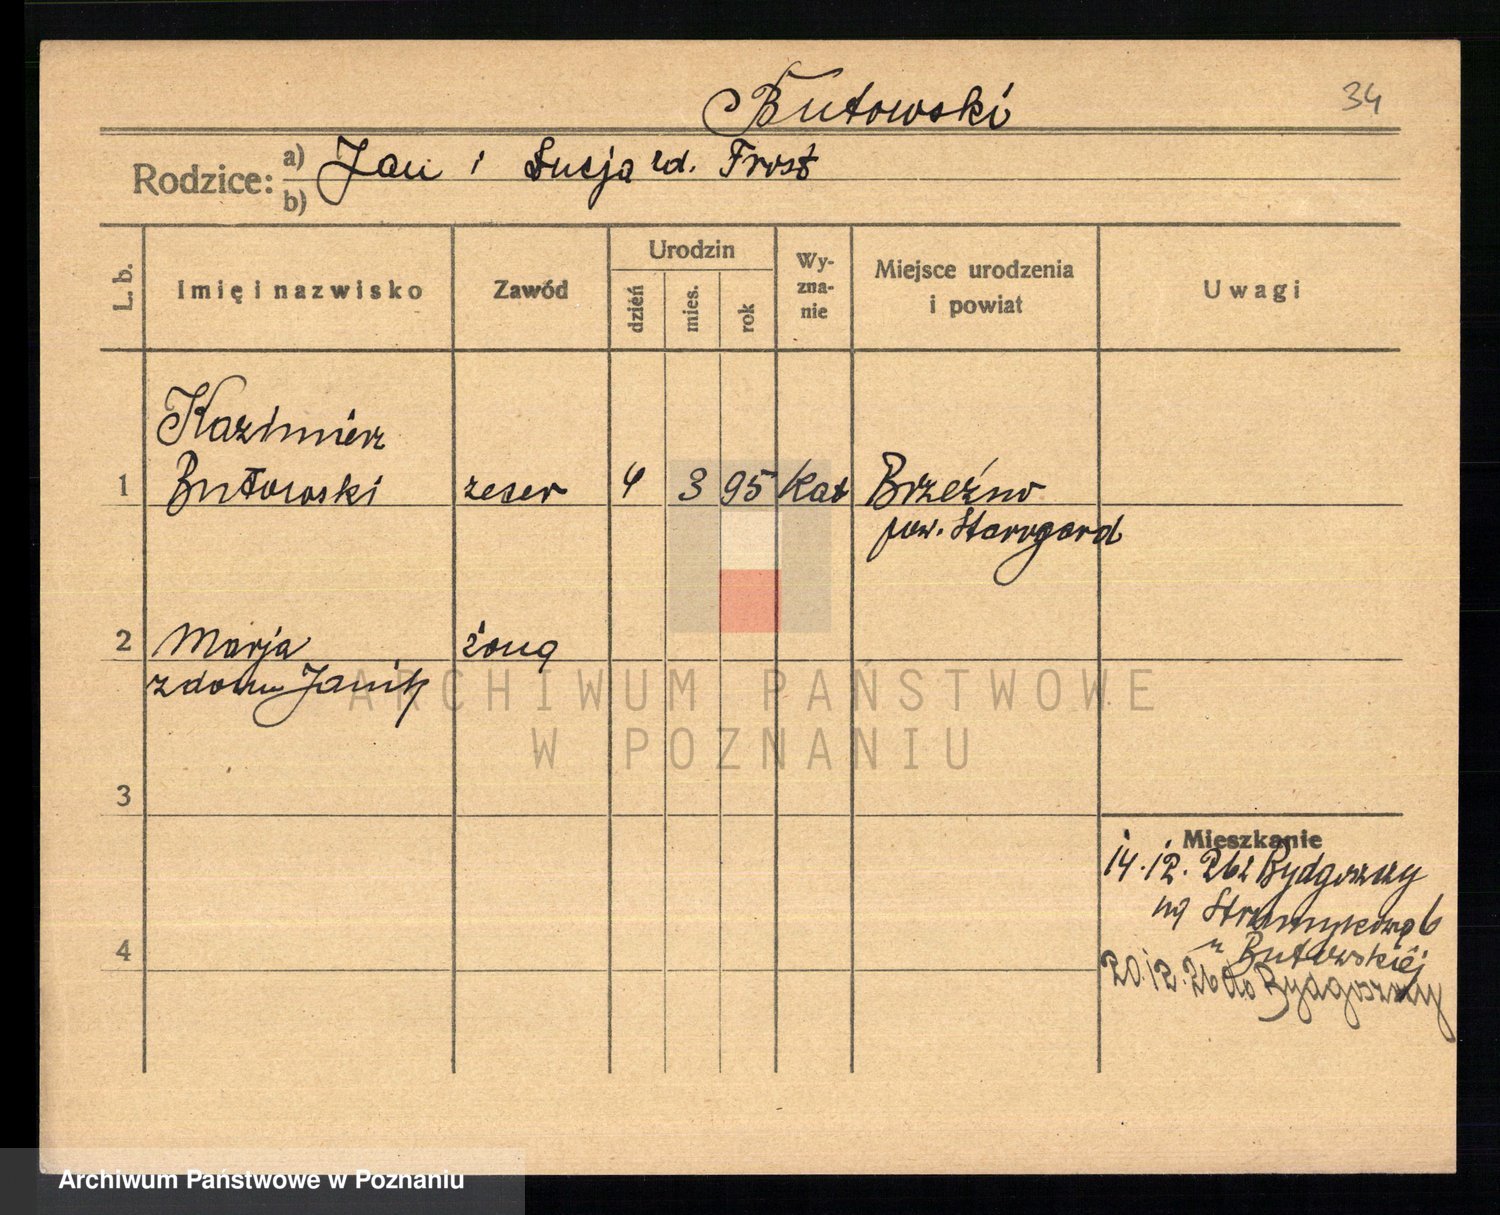 Butowski
34
Rodzice: a) Jan i Łucja zd. Frost
b)
L. b.
Imię i nazwisko
Zawód
Urodzin
dzień
mies.
rok
Wy-
zna-
nie
Miejsce urodzenia
i powiat
Uwagi
Kazimierz
1 Butowski zecer 4 3 95 kat Brzeźno
pow. Starogard
2 Marja żona
z domu Janik
ARCHIWUM PAŃSTWOWE
W POZNANIU
3
Mieszkanie
14.12.26 z Bydgoszczy
na 6
u Butowskiej
4
20.12.26 do Bydgoszczy
Archiwum Państwowe w Poznaniu